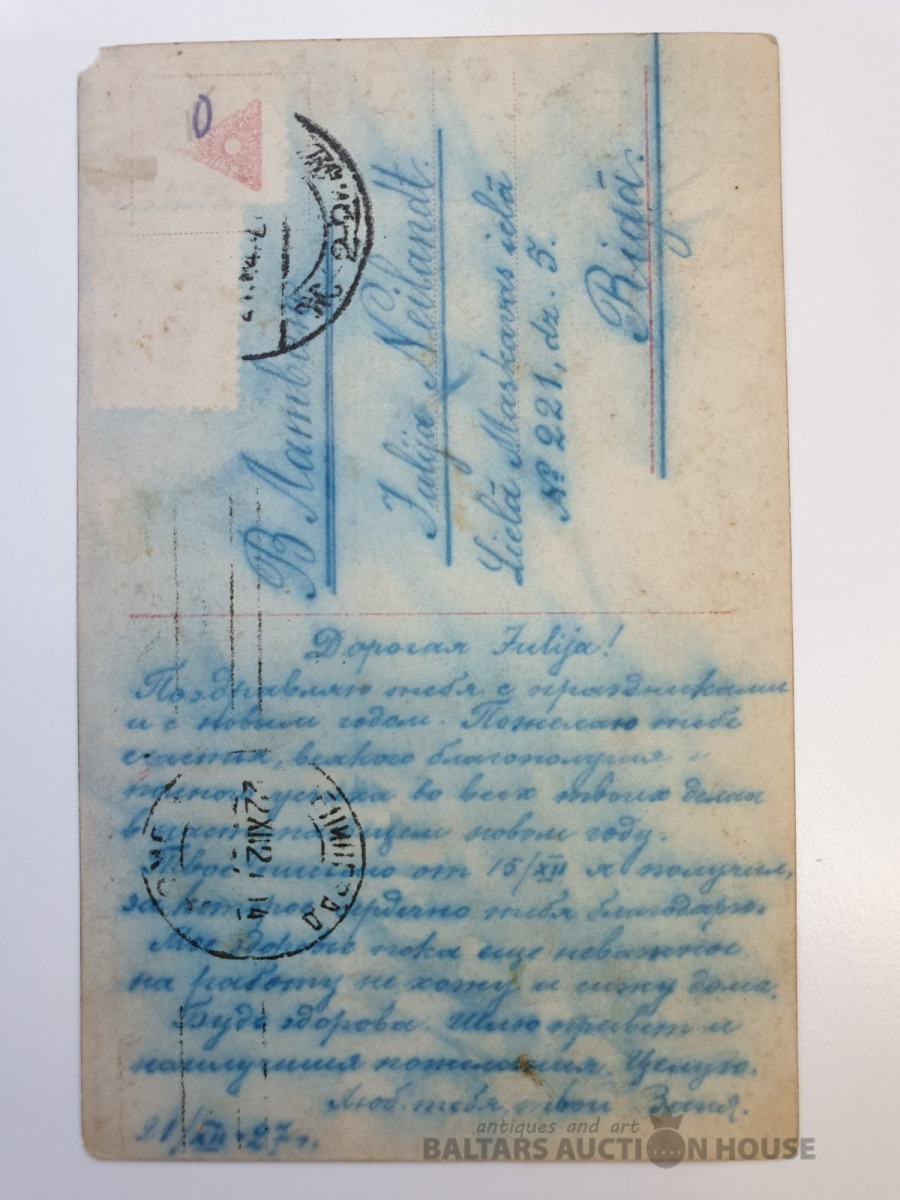 В Латвию
Julija Neilandt.
Lielā Maskavas ielā
№ 221, dz. 5.
Rigā.
Дорогая Julija!
Поздравляю тебя с праздниками
и с новым годом. Пожелаю тебе
счастья, всякого благополучия и
успеха во всех твоих делах
в новом году.
от 15/XII я получил,
за сердечно тебя благодарю.
пока еще неважное
на работу не хожу и сижу дома.
Будь здорова. Шлю привет и
наилучшия пожелания. Целую.
Люб. тебя твой
21/XII 27 г.
22 XII 27 14
antiques and art
BALTARS AUCTION HOUSE